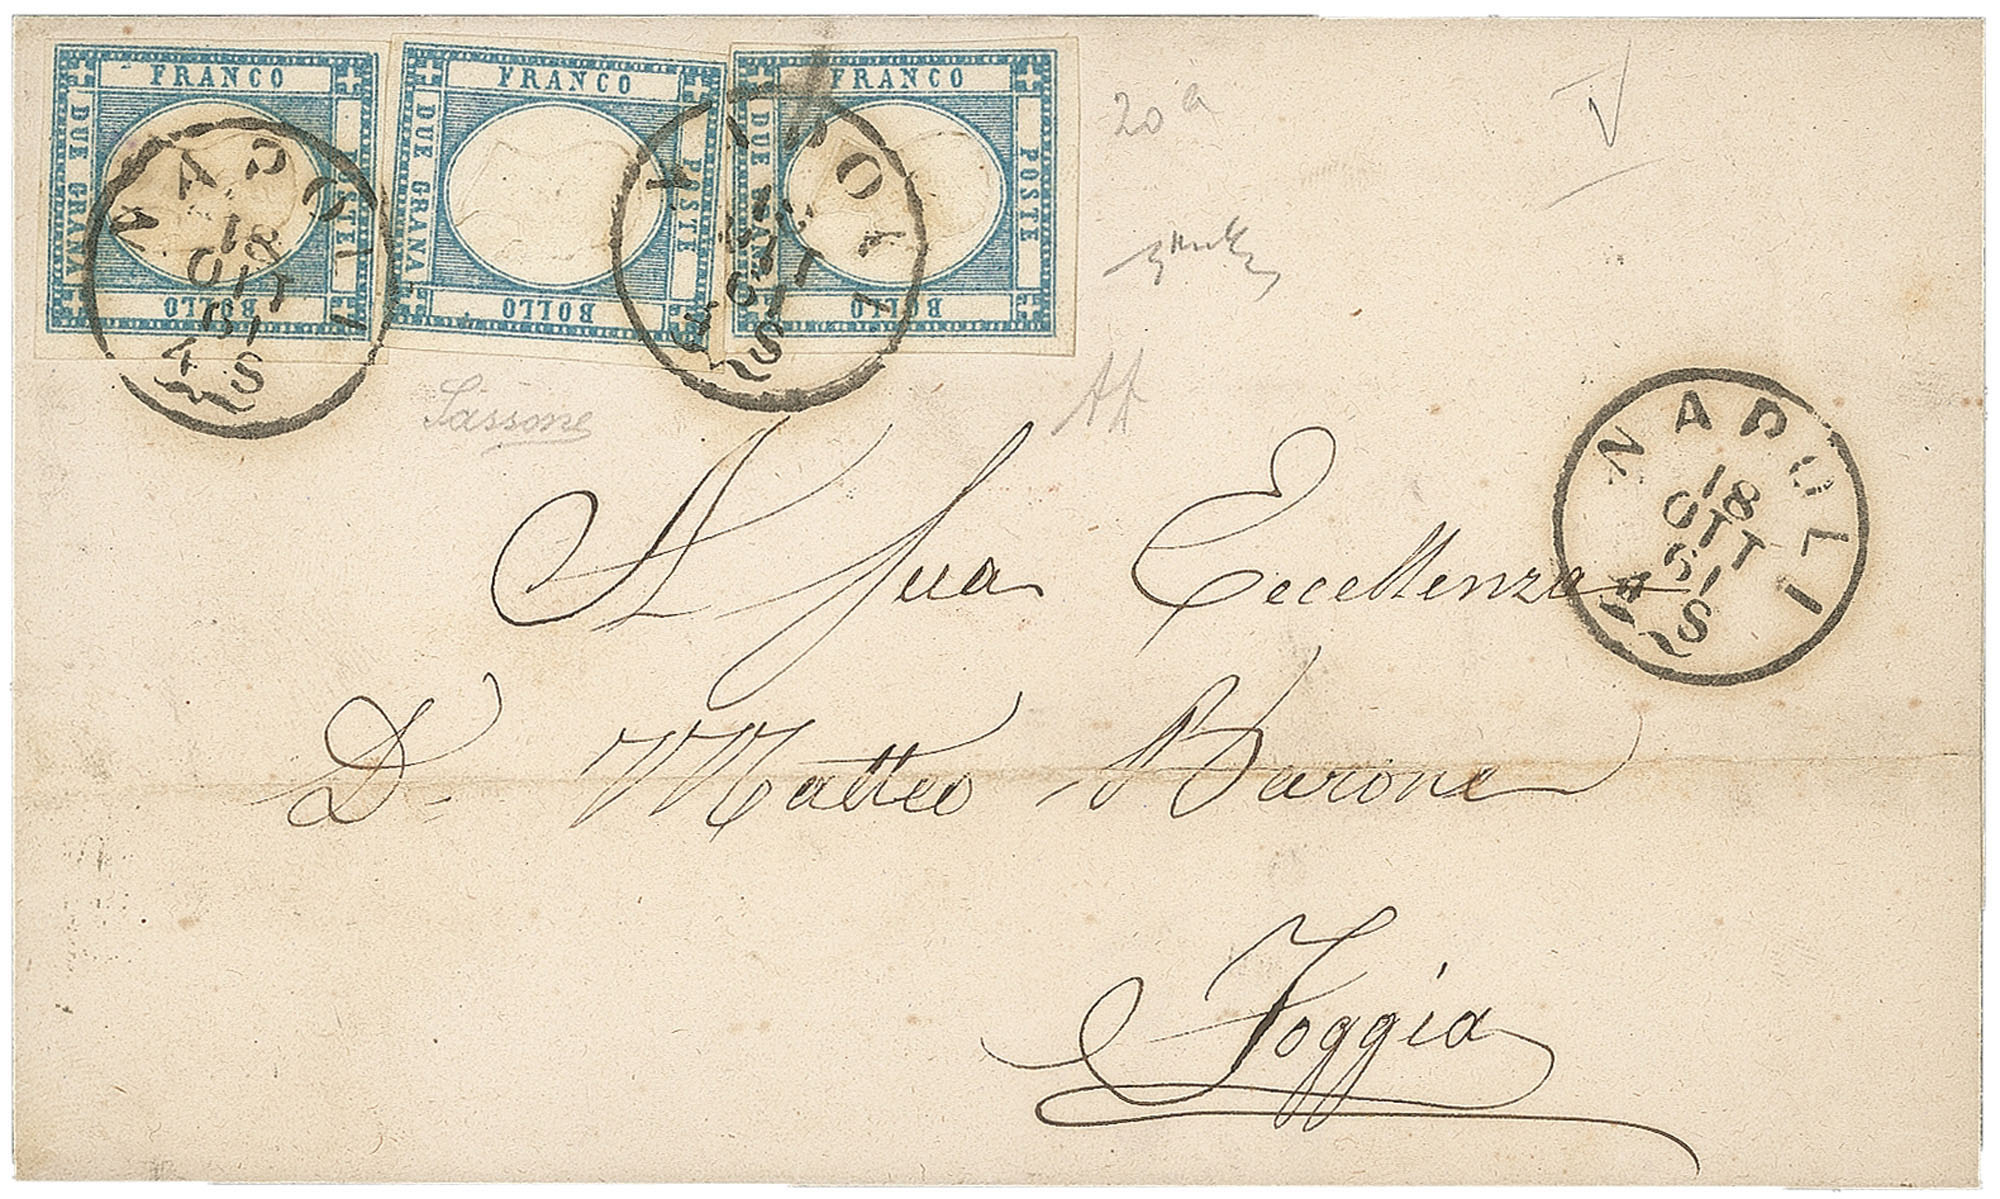 FRANCO
DUE GRANA
POSTE
BOLLO
FRANCO
DUE GRANA
POSTE
BOLLO
FRANCO
DUE GRANA
POSTE
BOLLO
NAPOLI
18
OTT
61
4 S
NAPOLI
OTT
61
S
20a
V
Sassone
NAPOLI
18
OTT
61
S
A Sua Eccellenza
Dn Matteo Barone
Foggia